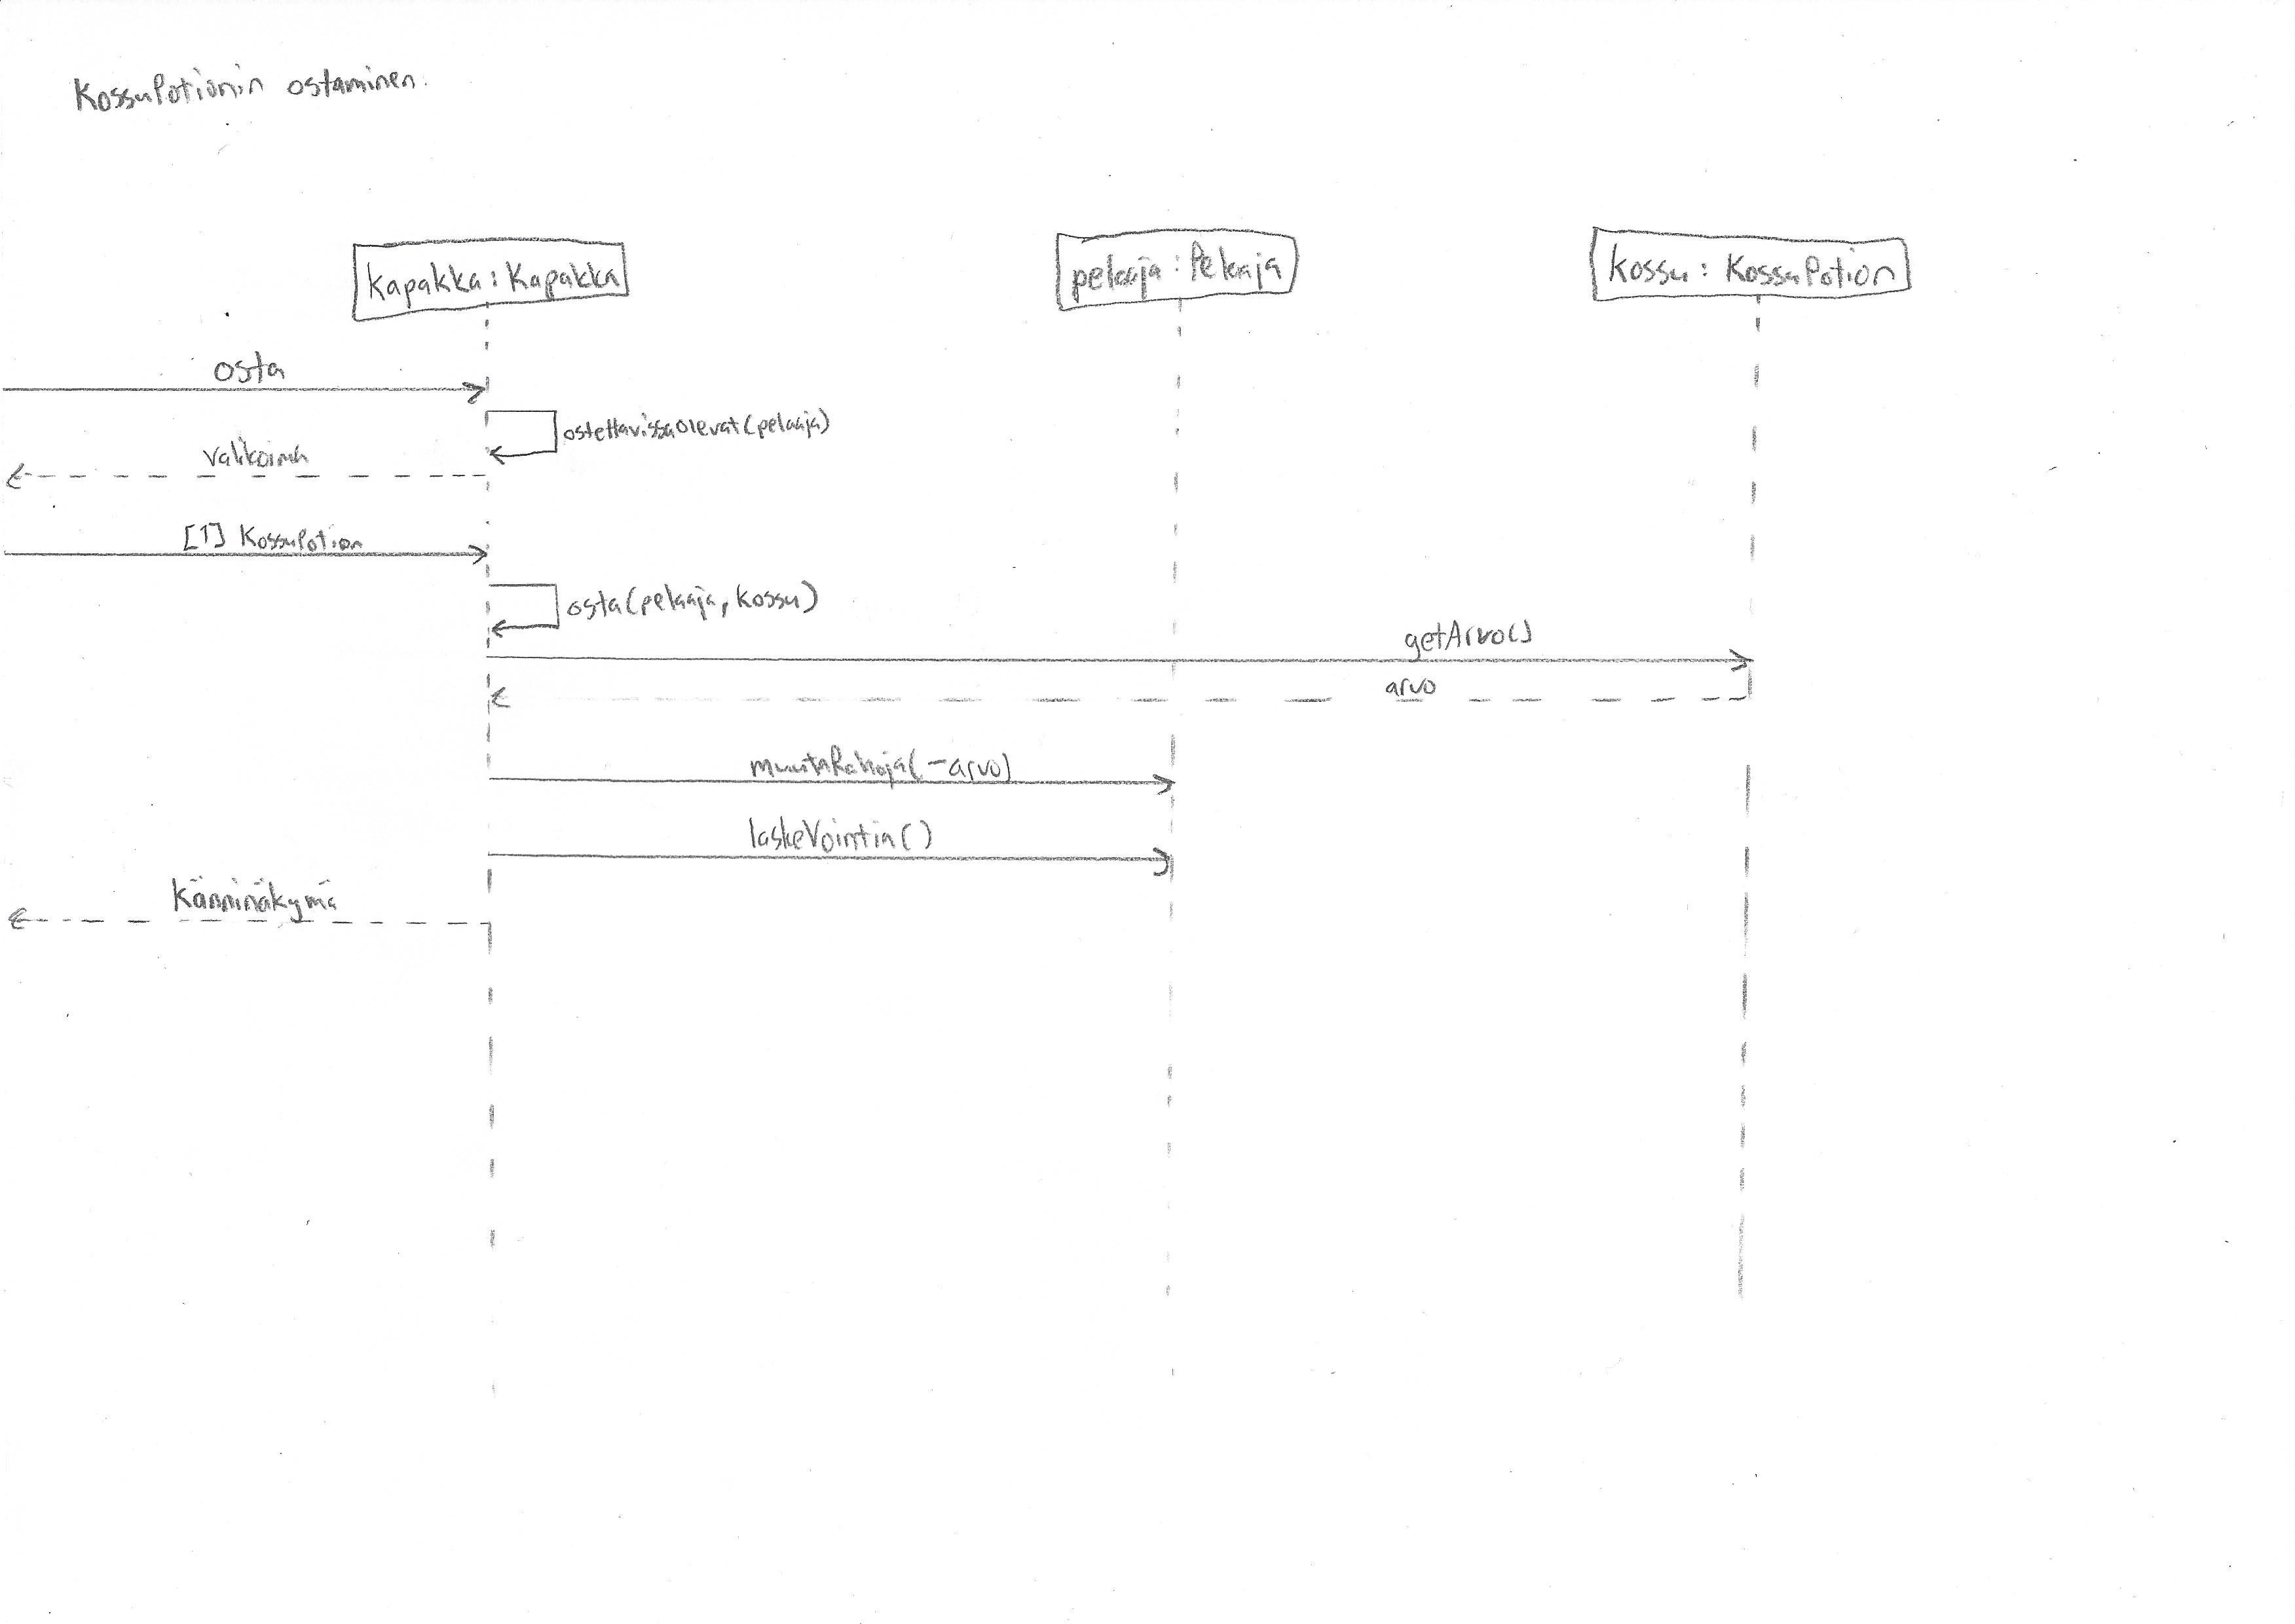 KossuPotionin ostaminen.
kapakka : Kapakka
pelaaja : Pelaaja
kossu : KossuPotion
osta
ostettavissaOlevat(pelaaja)
valikoima
[1] KossuPotion
osta(pelaaja, kossu)
getArvo()
arvo
muutaRahoja(-arvo)
laskeVointia()
Känninäkymä